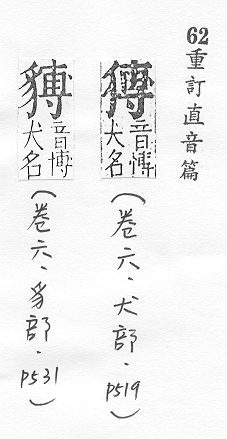 62重訂直音篇
猼
音愽
犬名
(卷六、犬部、P519)
音博
犬名
(卷六、豸部、P531)